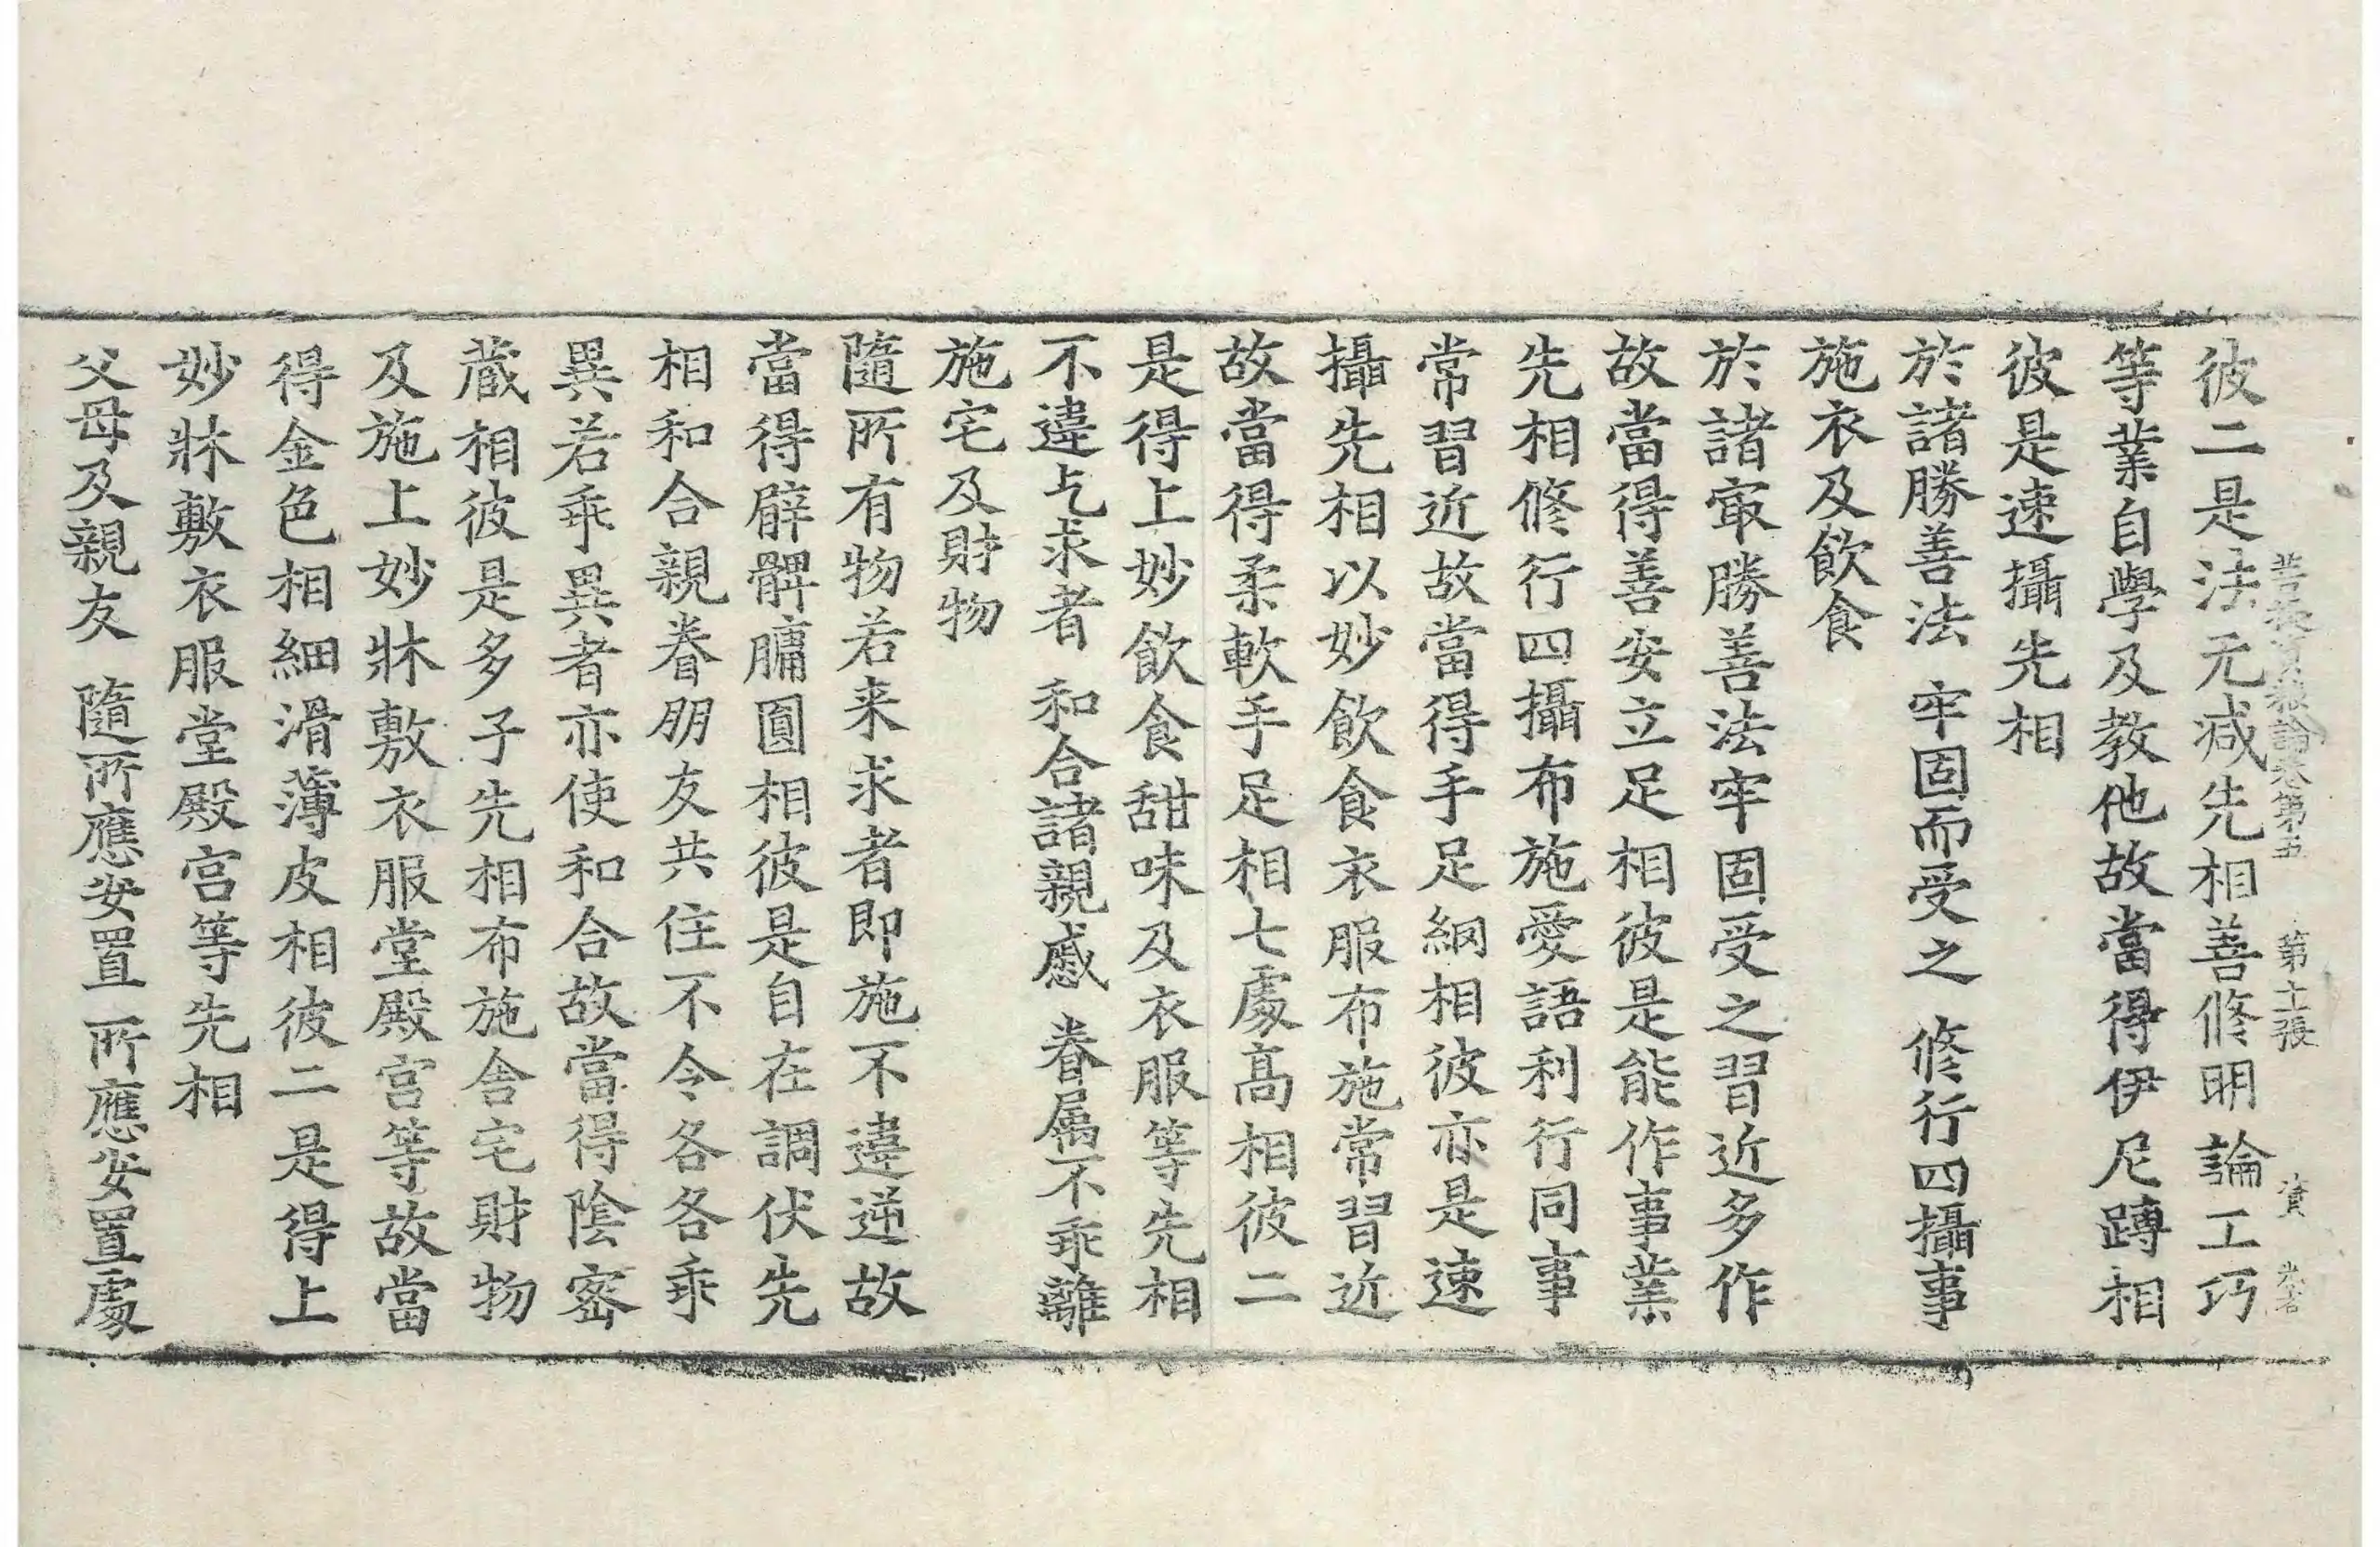 菩提資糧論卷第五 第十二張 資
彼二是法无减先相善修明論工巧
等業自學及教他故當得伊尼蹲相
彼是速攝先相
於諸勝善法 牢固而受之 修行四攝事
施衣及飲食
於諸㝡勝善法牢固受之習近多作
故當得善安立足相彼是能作事業
先相修行四攝布施愛語利行同事
常習近故當得手足網相彼亦是速
攝先相以妙飲食衣服布施常習近
故當得柔軟手足相七處高相彼二
是得上妙飲食甜味及衣服等先相
不違乞求者 和合諸親戚 眷屬不乖離
施宅及財物
隨所有物若来求者即施不違逆故
當得髀𨄔𦟛圓相彼是自在調伏先
相和合親眷朋友共住不令各各乖
異若乖異異者亦使和合故當得陰密
蔵相彼是多子先相布施舍宅財物
及施上妙牀敷衣服堂殿宮等故當
得金色相細滑薄皮相彼二是得上
妙牀敷衣服堂殿宮等先相
父母及親友 隨所應安置 所應安置處